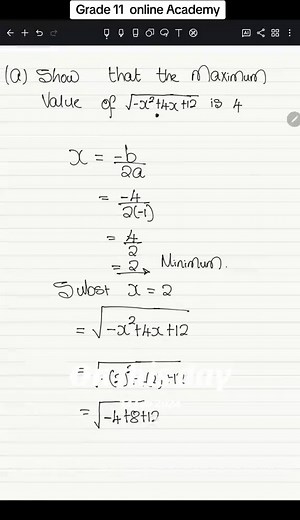 Grade 11 online Academy
(a) Show that the Maximum
Value of √-x²+4x+12 is 4
x = -b/2a
= -4/2(-1)
= 4/2
= 2 Minimum.
Subst x = 2
= √-x²+4x+12
= √-4+8+12